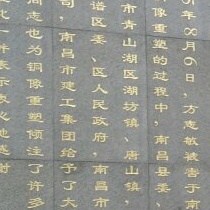 年8月6日，方志敏被害于南
像重塑的过程中，南昌县委、
市青山湖区湖坊镇、唐山镇，
谱区委、区人民政府，南昌市
司，南昌市建工集团给予了大
同志也为铜像重塑倾注了许多
一并表示衷心地感